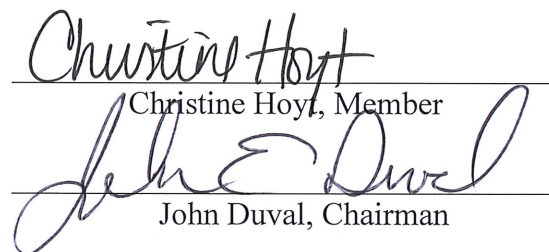 Christine Hoyt
Christine Hoyt, Member
John E Duval
John Duval, Chairman